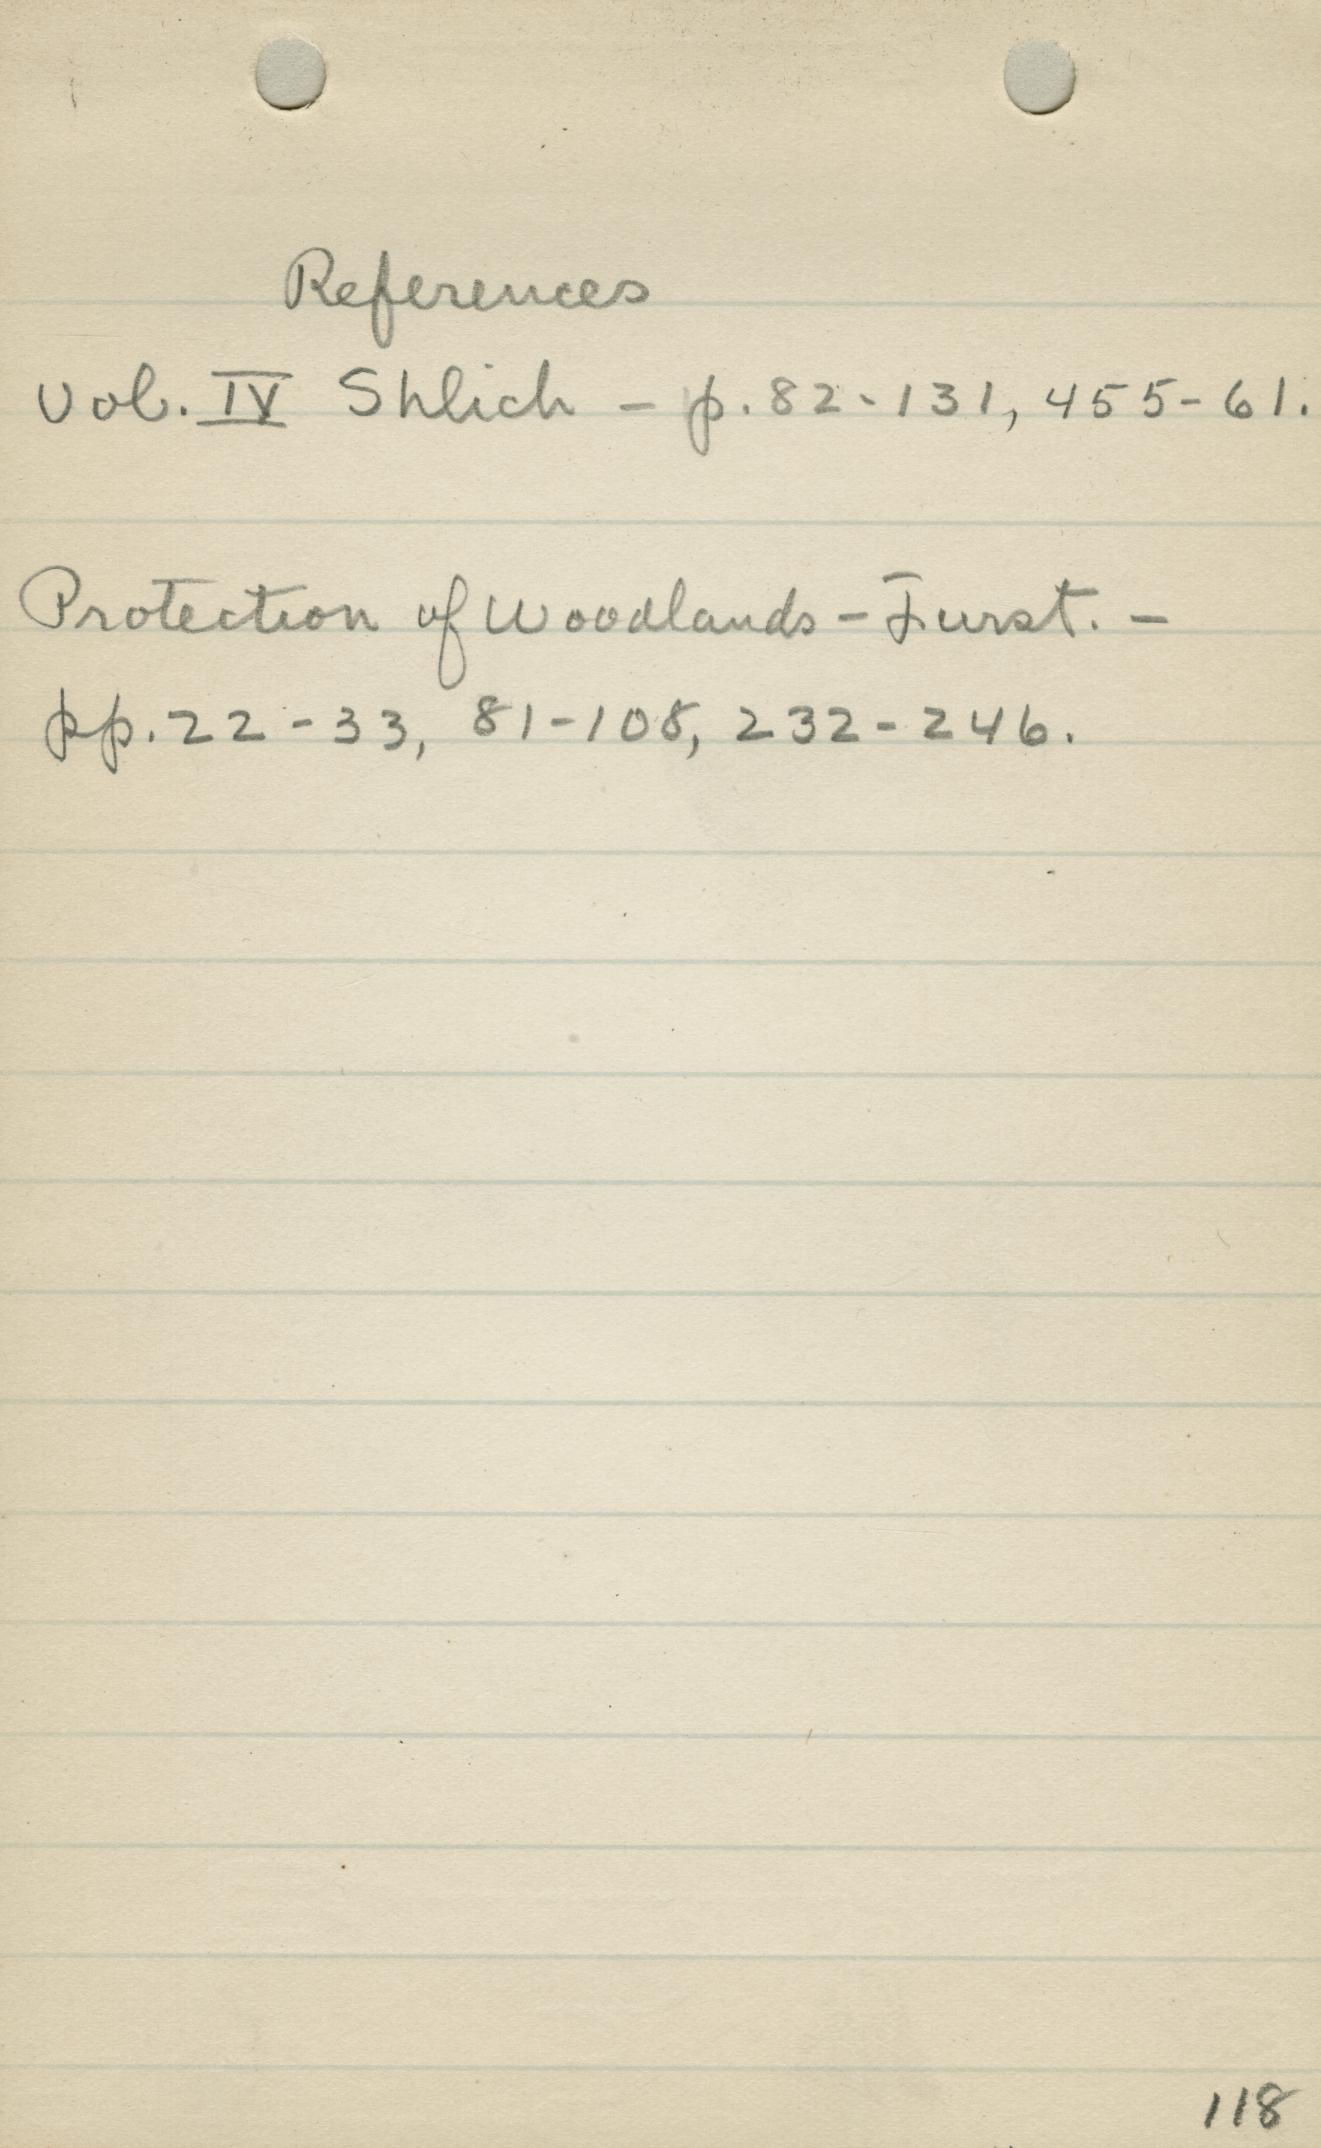 References
Vol. IV Shlich - p. 82-131, 455-61.
Protection of Woodlands - Furst. -
pp. 22-33, 81-108, 232-246.
118